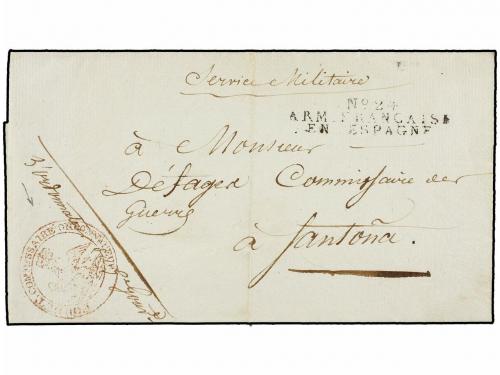 Service Militaire
No. 24
ARM. FRANÇAISE
EN ESPAGNE
à Monsieur
Commissaire des
Guerre
à Santoña.
COMMISSAIRE ORDONNATEUR